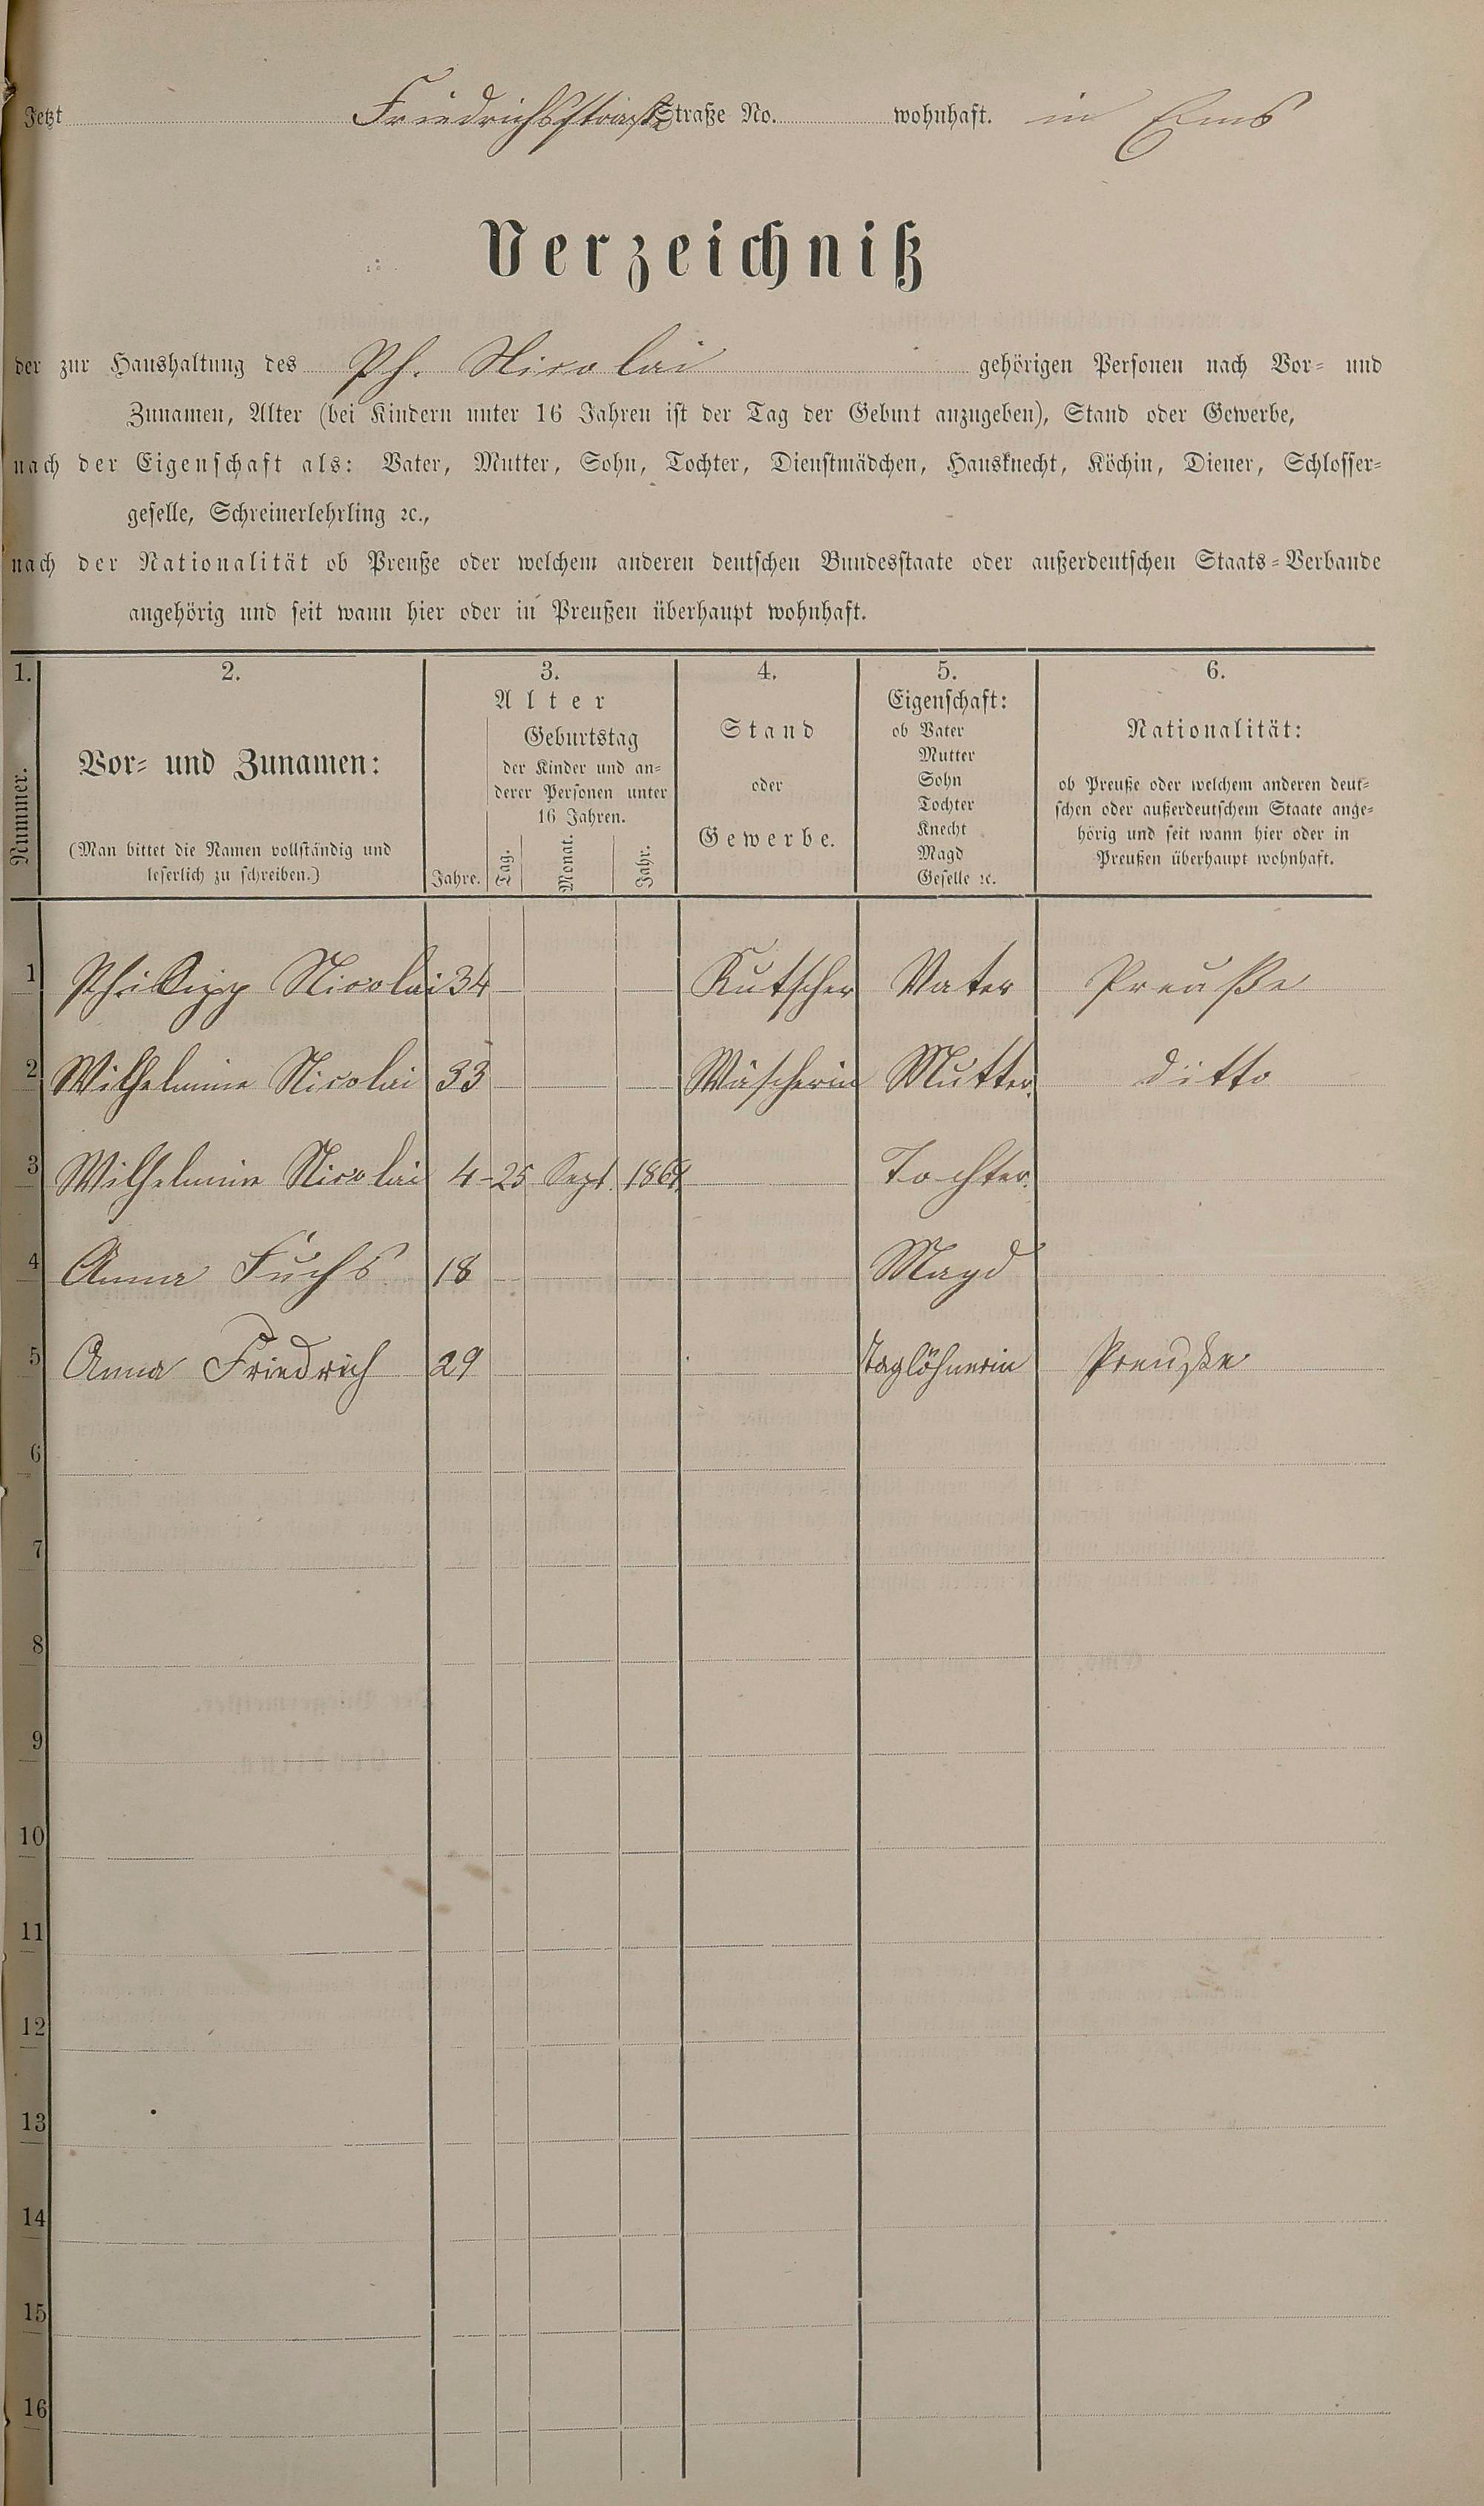 Jetzt Friedrichsstraße Straße No. wohnhaft. in Ems
Verzeichniß
der zur Haushaltung des Ph. Nicolai gehörigen Personen nach Vor- und
Zunamen, Alter (bei Kindern unter 16 Jahren ist der Tag der Geburt anzugeben), Stand oder Gewerbe,
nach der Eigenschaft als: Vater, Mutter, Sohn, Tochter, Dienstmädchen, Hausknecht, Köchin, Diener, Schlosser-
geselle, Schreinerlehrling ꝛc.,
nach der Nationalität ob Preuße oder welchem anderen deutschen Bundesstaate oder außerdeutschen Staats-Verbande
angehörig und seit wann hier oder in Preußen überhaupt wohnhaft.
1. 2. 3. 4. 5. 6.
Nummer.
Vor- und Zunamen:
(Man bittet die Namen vollständig und
leserlich zu schreiben.)
Alter
Geburtstag
der Kinder und an-
derer Personen unter
16 Jahren.
Jahre. Tag. Monat. Jahr.
Stand
oder
Gewerbe.
Eigenschaft:
ob Vater
Mutter
Sohn
Tochter
Knecht
Magd
Geselle ꝛc.
Nationalität:
ob Preuße oder welchem anderen deut-
schen oder außerdeutschem Staate ange-
hörig und seit wann hier oder in
Preußen überhaupt wohnhaft.
1 Philipp Nicolai 34 Kutscher Vater Preuße
2 Wilhelmine Nicolai 33 Wäscherin Mutter ditto
3 Wilhelmine Nicolai 4 25 Sept. Tochter.
4 Anna Fuchs 18 Magd
5 Anna Friedrich 29 Taglöhnerin Preuße
6
7
8
9
10
11
12
13
14
15
16